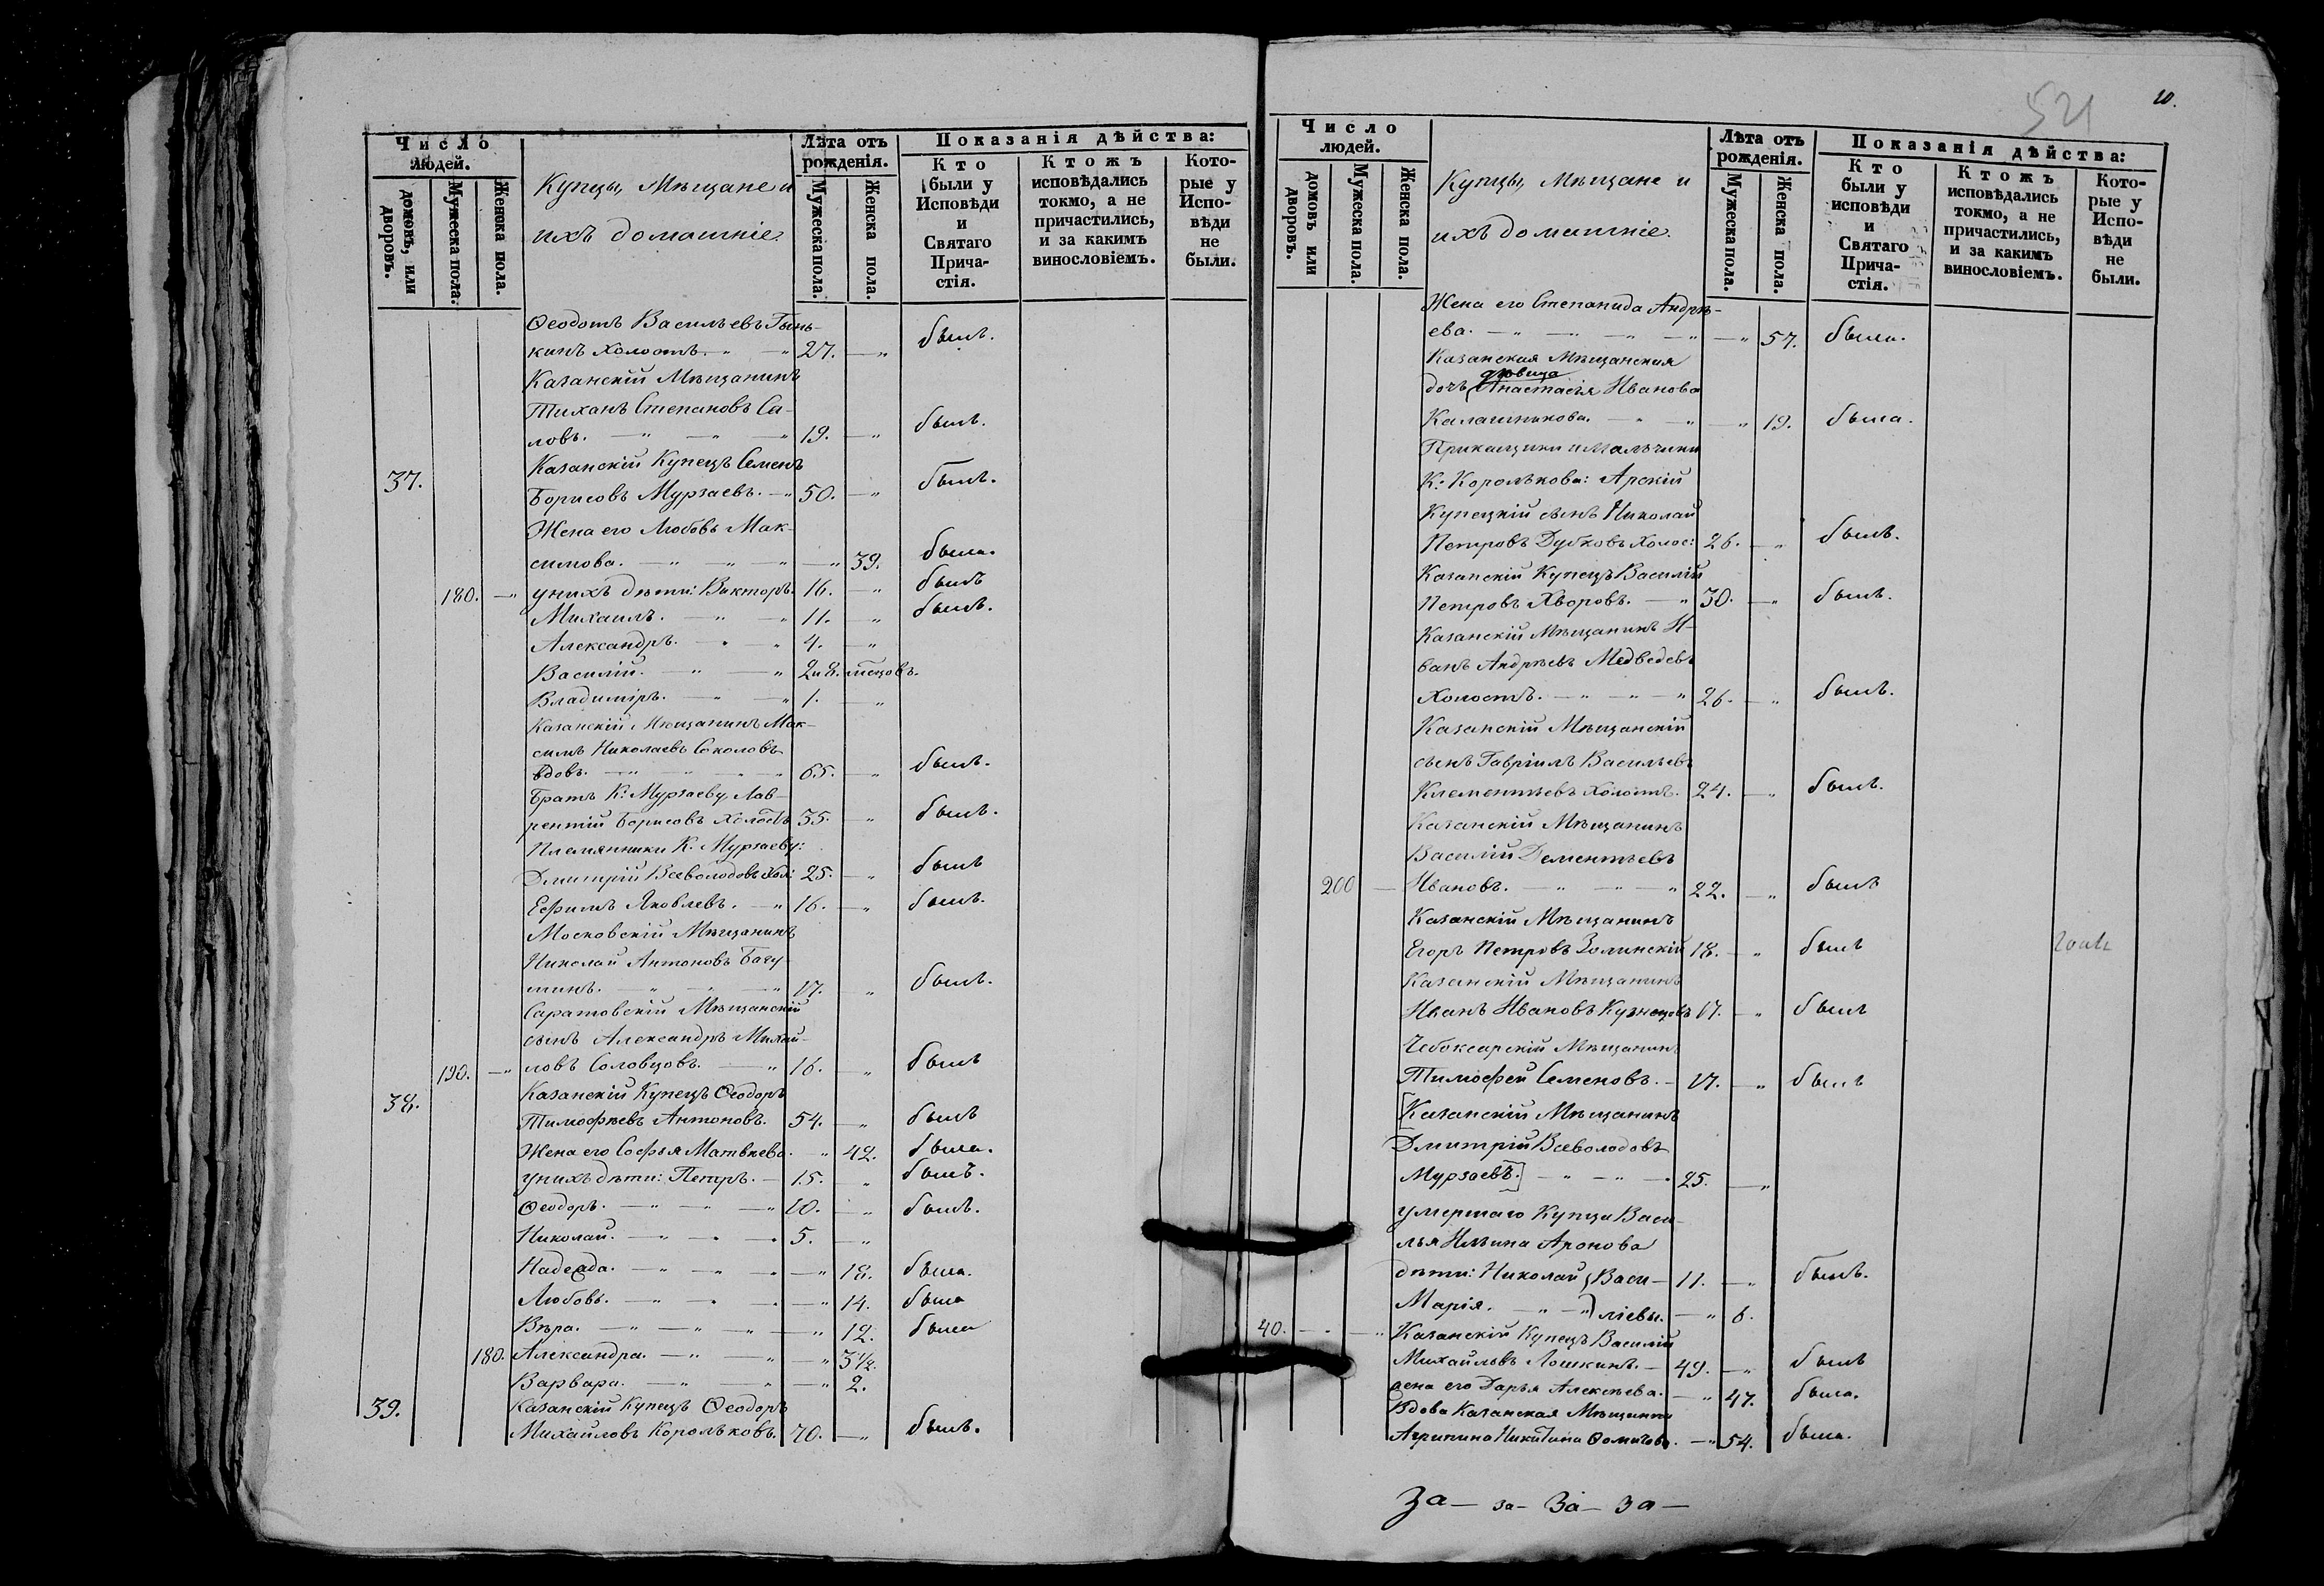 Число людей.
домовъ, или дворовъ.
Мужеска пола.
Женска пола.
Купцы, Мѣщане и
ихъ домашніе.
Лѣта отъ рожденія.
Мужеска пола.
Женска пола.
Показанія дѣйства:
Кто были у Исповѣди и Святаго Прича-стія.
Ктожъ исповѣдались токмо, а не причастились, и за какимъ винословіемъ.
Кото-рые у Испо-вѣди не были.
Ѳеодотъ Васильевъ
кинъ холостъ. — " — " 27. — " былъ.
Казанскій Мѣщанинъ
Тиханъ Степановъ Са-
ловъ. — " — " — " 19. — " былъ.
37. Казанскій Купецъ Семенъ
Борисовъ Мурзаевъ. — " 50. — " былъ.
Жена его Любовь Мак-
симова. — " — " — " — " 39. была.
180. — " у нихъ дѣти: Викторъ. 16. — " былъ
Михаилъ. — " — " 11. — " былъ.
Александръ. — " — " 4. — "
Василій. — " — " 2 и 8. мѣсцовъ.
Владиміръ. — " — " 1. — "
Казанскій Мѣщанинъ Мак-
симъ Николаевъ Соколовъ
вдовъ. — " — " — " 65. — " былъ.
Братъ К: Мурзаеву Лав-
рентій Борисовъ холостъ 35. — " былъ.
Племянники К. Мурзаеву:
Дмитрій Всеволодовъ хол: 25. — " былъ
Ефимъ Яковлевъ. — " 16. — " былъ.
Московскій Мѣщанинъ
Николай Антоновъ Багу-
минъ. — " — " — " 17. — " былъ.
Саратовскій Мѣщанскій
сынъ Александръ Михай-
190. — " ловъ Соловцовъ. — " 16. — " былъ
38. Казанскій Купецъ Ѳеодоръ
Тимофѣевъ Антоновъ. 54. — " былъ
Жена его Софья Матвѣева. — " 42. была.
у нихъ дѣти: Петръ. — 15. " былъ.
Ѳеодоръ. — " — " — " 10. — " былъ.
Николай. — " — " — " 5. — "
Надежда. — " — " — " 18. была.
Любовь. — " — " — " 14. была
Вѣра. — " — " — " — " 12. была
180. Александра. — " — " — " 3½.
Варвара. — " — " — " 2.
39. Казанскій Купецъ Ѳеодоръ
Михайловъ Корольковъ. 70. — " былъ.
521
10.
Число людей.
домовъ или дворовъ.
Мужеска пола.
Женска пола.
Купцы, Мѣщане и
ихъ домашніе.
Лѣта отъ рожденія.
Мужеска пола.
Женска пола.
Показанія дѣйства:
Кто были у исповѣди и Святаго Прича-стія.
Ктожъ исповѣдались токмо, а не причастились, и за какимъ винословіемъ.
Кото-рые у Испо-вѣди не были.
Жена его Степанида Андрѣ-
ева. — " — " — " — " — " 57. была.
Казанская Мѣщанская
дѣвица
дочь Анастасія Иванова
Калашникова. — " — " — " 19. была.
Прикащики и мальчики
К. Королькова: Арскій
Купецкій сынъ Николай
Петровъ Дубковъ холос: 26. — " былъ.
Казанскій Купецъ Василій
Петровъ Хворовъ. — " 30. — " былъ.
Казанскій Мѣщанинъ И-
ванъ Андрѣевъ Медведевъ
Холостъ. — " — " — " 26. — " былъ.
Казанскій Мѣщанскій
сынъ Гавріилъ Васильевъ
Клементьевъ холостъ. 24. — " былъ.
Казанскій Мѣщанинъ
Василій Дементьевъ
200 — Ивановъ. — " — " — " 22. — " былъ
Казанскій Мѣщанинъ
Егоръ Петровъ Золинскій 18. — " былъ
Казанскій Мѣщанинъ
Иванъ Ивановъ Кузнецовъ 17. — " былъ
Чебоксарскій Мѣщанинъ
Тимофей Семеновъ. — 17. — " былъ
[Казанскій Мѣщанинъ
Дмитрій Всеволодовъ
Мурзаевъ.] — " — " — " 25. — "
умершаго Купца Васи-
лья Ильина Аронова
дѣти: Николай } Васи- 11. — " былъ.
Марія. — " — " } ліевы. — " 6.
40. — " — " Казанскій Купецъ Василій
Михайловъ Лошкинъ. — 49. — " былъ
жена его Дарья Алексѣева. — " 47. была.
Вдова Казанская Мѣщанка
Агрипина Никитина Ѳомичова. — " 54. была.
За — за — За — за —